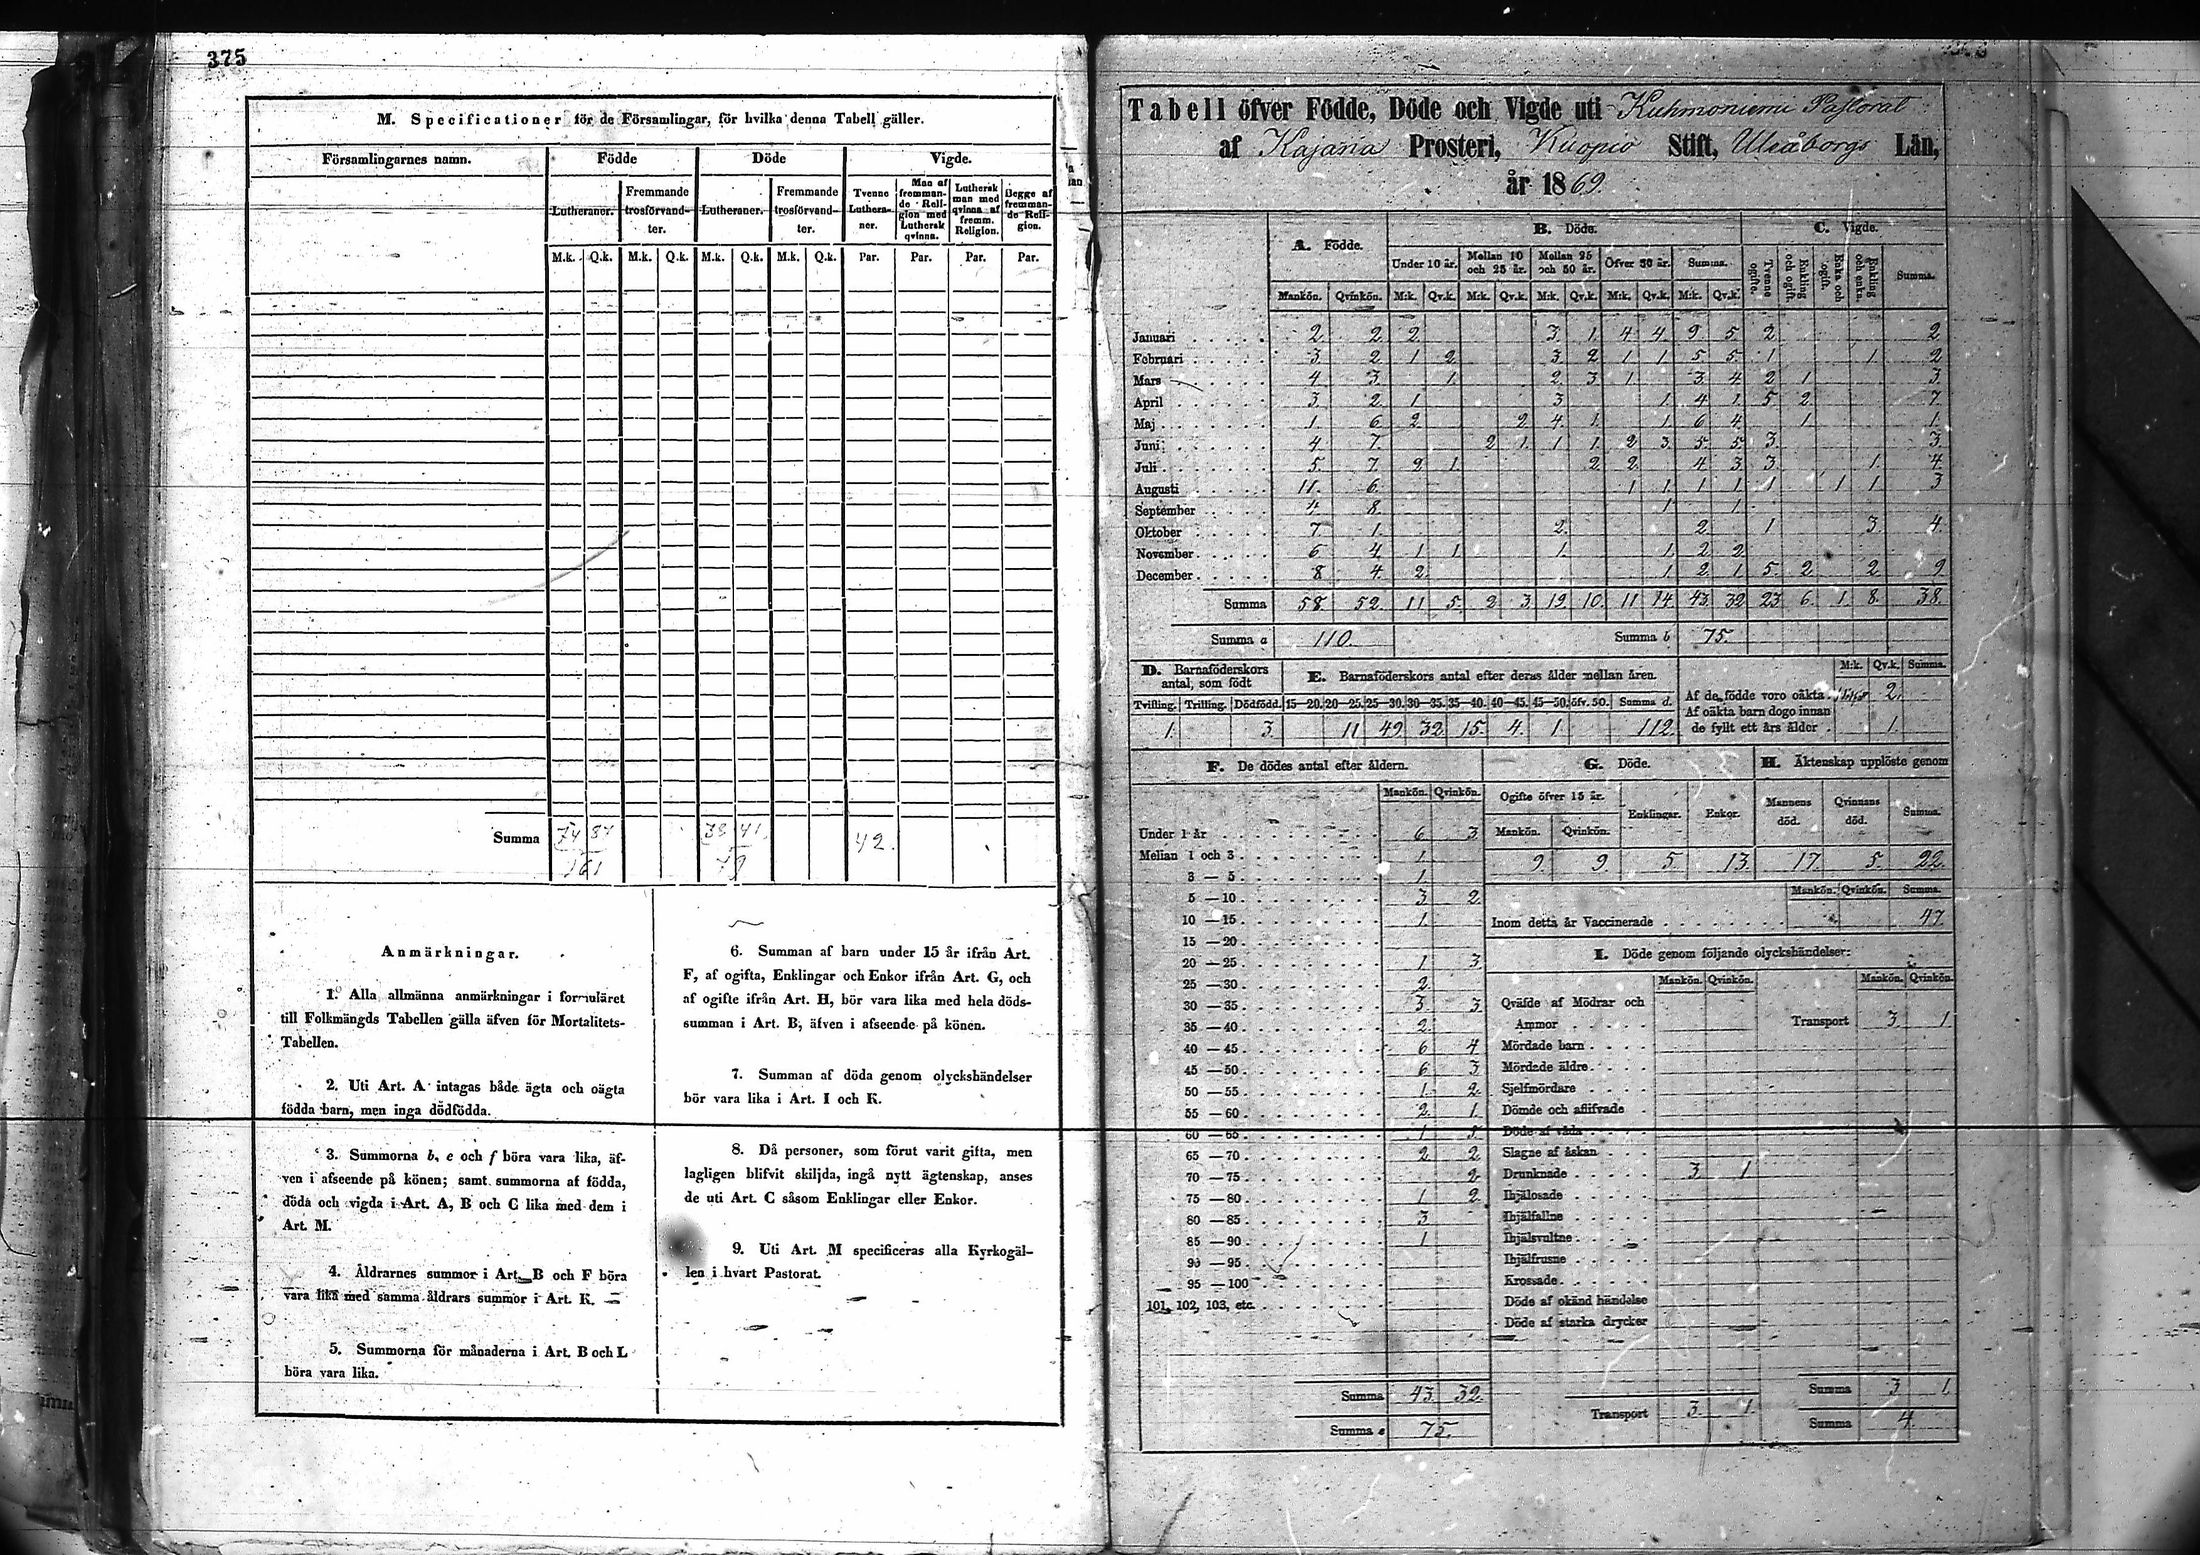 375
M. Specificationer för de Församlingar, för hvilka denna Tabell gäller.
Församlingarnes namn. Födde Döde Vigde.
Lutheraner. Fremmande trosförvandter. Lutheraner. Fremmande trosförvandter. Tvenne Lutheraner. Man af fremmande Religion med Luthersk qvinna. Luthersk man med qvinna af fremm. Religion. Begge af fremmande Religion.
M.k. Q.k. M.k. Q.k. M.k. Q.k. M.k. Q.k. Par. Par. Par. Par.
Summa 74 87 41 42.
161
Anmärkningar.
1. Alla allmänna anmärkningar i formuläret
till Folkmängds Tabellen gälla äfven för Mortalitets-
Tabellen.
2. Uti Art. A intagas både ägta och oägta
födda barn, men inga dödfödda.
3. Summorna b, e och f böra vara lika, äf-
ven i afseende på könen; samt summorna af födda,
döda och vigda i Art. A, B och C lika med dem i
Art. M.
4. Åldrarnes summor i Art. B och F böra
vara lika med samma åldrars summor i Art. K.
5. Summorna för månaderna i Art. B och L
böra vara lika.
6. Summan af barn under 15 år ifrån Art.
F, af ogifta, Enklingar och Enkor ifrån Art. G, och
af ogifte ifrån Art. H, bör vara lika med hela döds-
summan i Art. B, äfven i afseende på könen.
7. Summan af döda genom olyckshändelser
bör vara lika i Art. I och K.
8. Då personer, som förut varit gifta, men
lagligen blifvit skiljda, ingå nytt ägtenskap, anses
de uti Art. C såsom Enklingar eller Enkor.
9. Uti Art. M specificeras alla Kyrkogäl-
len i hvart Pastorat.
Tabell öfver Födde, Döde och Vigde uti Kuhmoniemi Pastorat
af Kajana Prosteri, Kuopio Stift, Uleåborgs Län,
år 1869.
A. Födde. B. Döde. C. Vigde.
Under 10 år. Mellan 10 och 25 år. Mellan 25 och 50 år. Öfver 50 år. Summa. Tvenne ogifte. Enkling och ogift. Enka och ogift. Enkling och enka. Summa.
Mankön. Qvinkön. M:k. Qv.k. M:k. Qv.k. M:k. Qv.k. M:k. Qv.k. M:k. Qv.k.
Januari 2 2 2 3 1 4 4 9 5 2 2
Februari 3 2 1 2 3 2 1 1 5 5 1 1 2
Mars 4 3 1 2 3 1 3 4 2 1 3
April 3 2 1 3 1 4 1 5 2 7
Maj 1 6 2 2 4 1 1 6 4 1 1
Juni 4 7 2 1 1 1 2 3 5 5 3 3
Juli 5 7 2 1 2 2 4 3 3 1 4
Augusti 11 6 1 1 1 1 1 1 1 3
September 4 8 1 1
Oktober 7 1 2 2 1 3 4
November 6 4 1 1 1 1 2 2
December 8 4 2 1 2 1 5 2 2 9
Summa 58 52 11 5 2 3 19 10 11 14 43 32 23 6 1 8 38
Summa a 110. Summa b 75.
D. Barnaföderskors antal, som födt E. Barnaföderskors antal efter deras ålder mellan åren. M:k. Qv.k. Summa.
Tvilling. Trilling. Dödfödd. 15—20. 20—25. 25—30. 30—35. 35—40. 40—45. 45—50. öfv. 50. Summa d.
1 3 11 49 32 15 4 1 112
Af de födde voro oäkta 2
Af oäkta barn dogo innan
de fyllt ett års ålder 1
F. De dödes antal efter åldern. G. Döde. H. Äktenskap upplöste genom
Mankön. Qvinkön. Ogifte öfver 15 år. Enklingar. Enkor. Mannens död. Qvinnans död. Summa.
Mankön. Qvinkön.
9 9 5 13 17 5 22
Under 1 år 6 3
Mellan 1 och 3 1
3 — 5 1
5 — 10 3 2
10 — 15 1
15 — 20
20 — 25 1 3
25 — 30 2
30 — 35 3 3
35 — 40 2
40 — 45 6 4
45 — 50 6 3
50 — 55 1 2
55 — 60 2 1
60 — 65 1 5
65 — 70 2 2
70 — 75 2
75 — 80 1 2
80 — 85 3
85 — 90 1
90 — 95
95 — 100
101, 102, 103, etc.
Summa 43 32
Summa e 75.
Mankön. Qvinkön. Summa.
Inom detta år Vaccinerade 47
I. Döde genom följande olyckshändelser:
Mankön. Qvinkön. Mankön. Qvinkön.
Qväfde af Mödrar och
Ammor Transport 3 1
Mördade barn
Mördade äldre
Sjelfmördare
Dömde och aflifvade
Döde af våda
Slagne af åskan
Drunknade 3 1
Ihjälosade
Ihjälfallne
Ihjälsvultne
Ihjälfrusne
Krossade
Döde af okänd händelse
Döde af starka drycker
Transport 3 1
Summa 3 1
Summa 4.